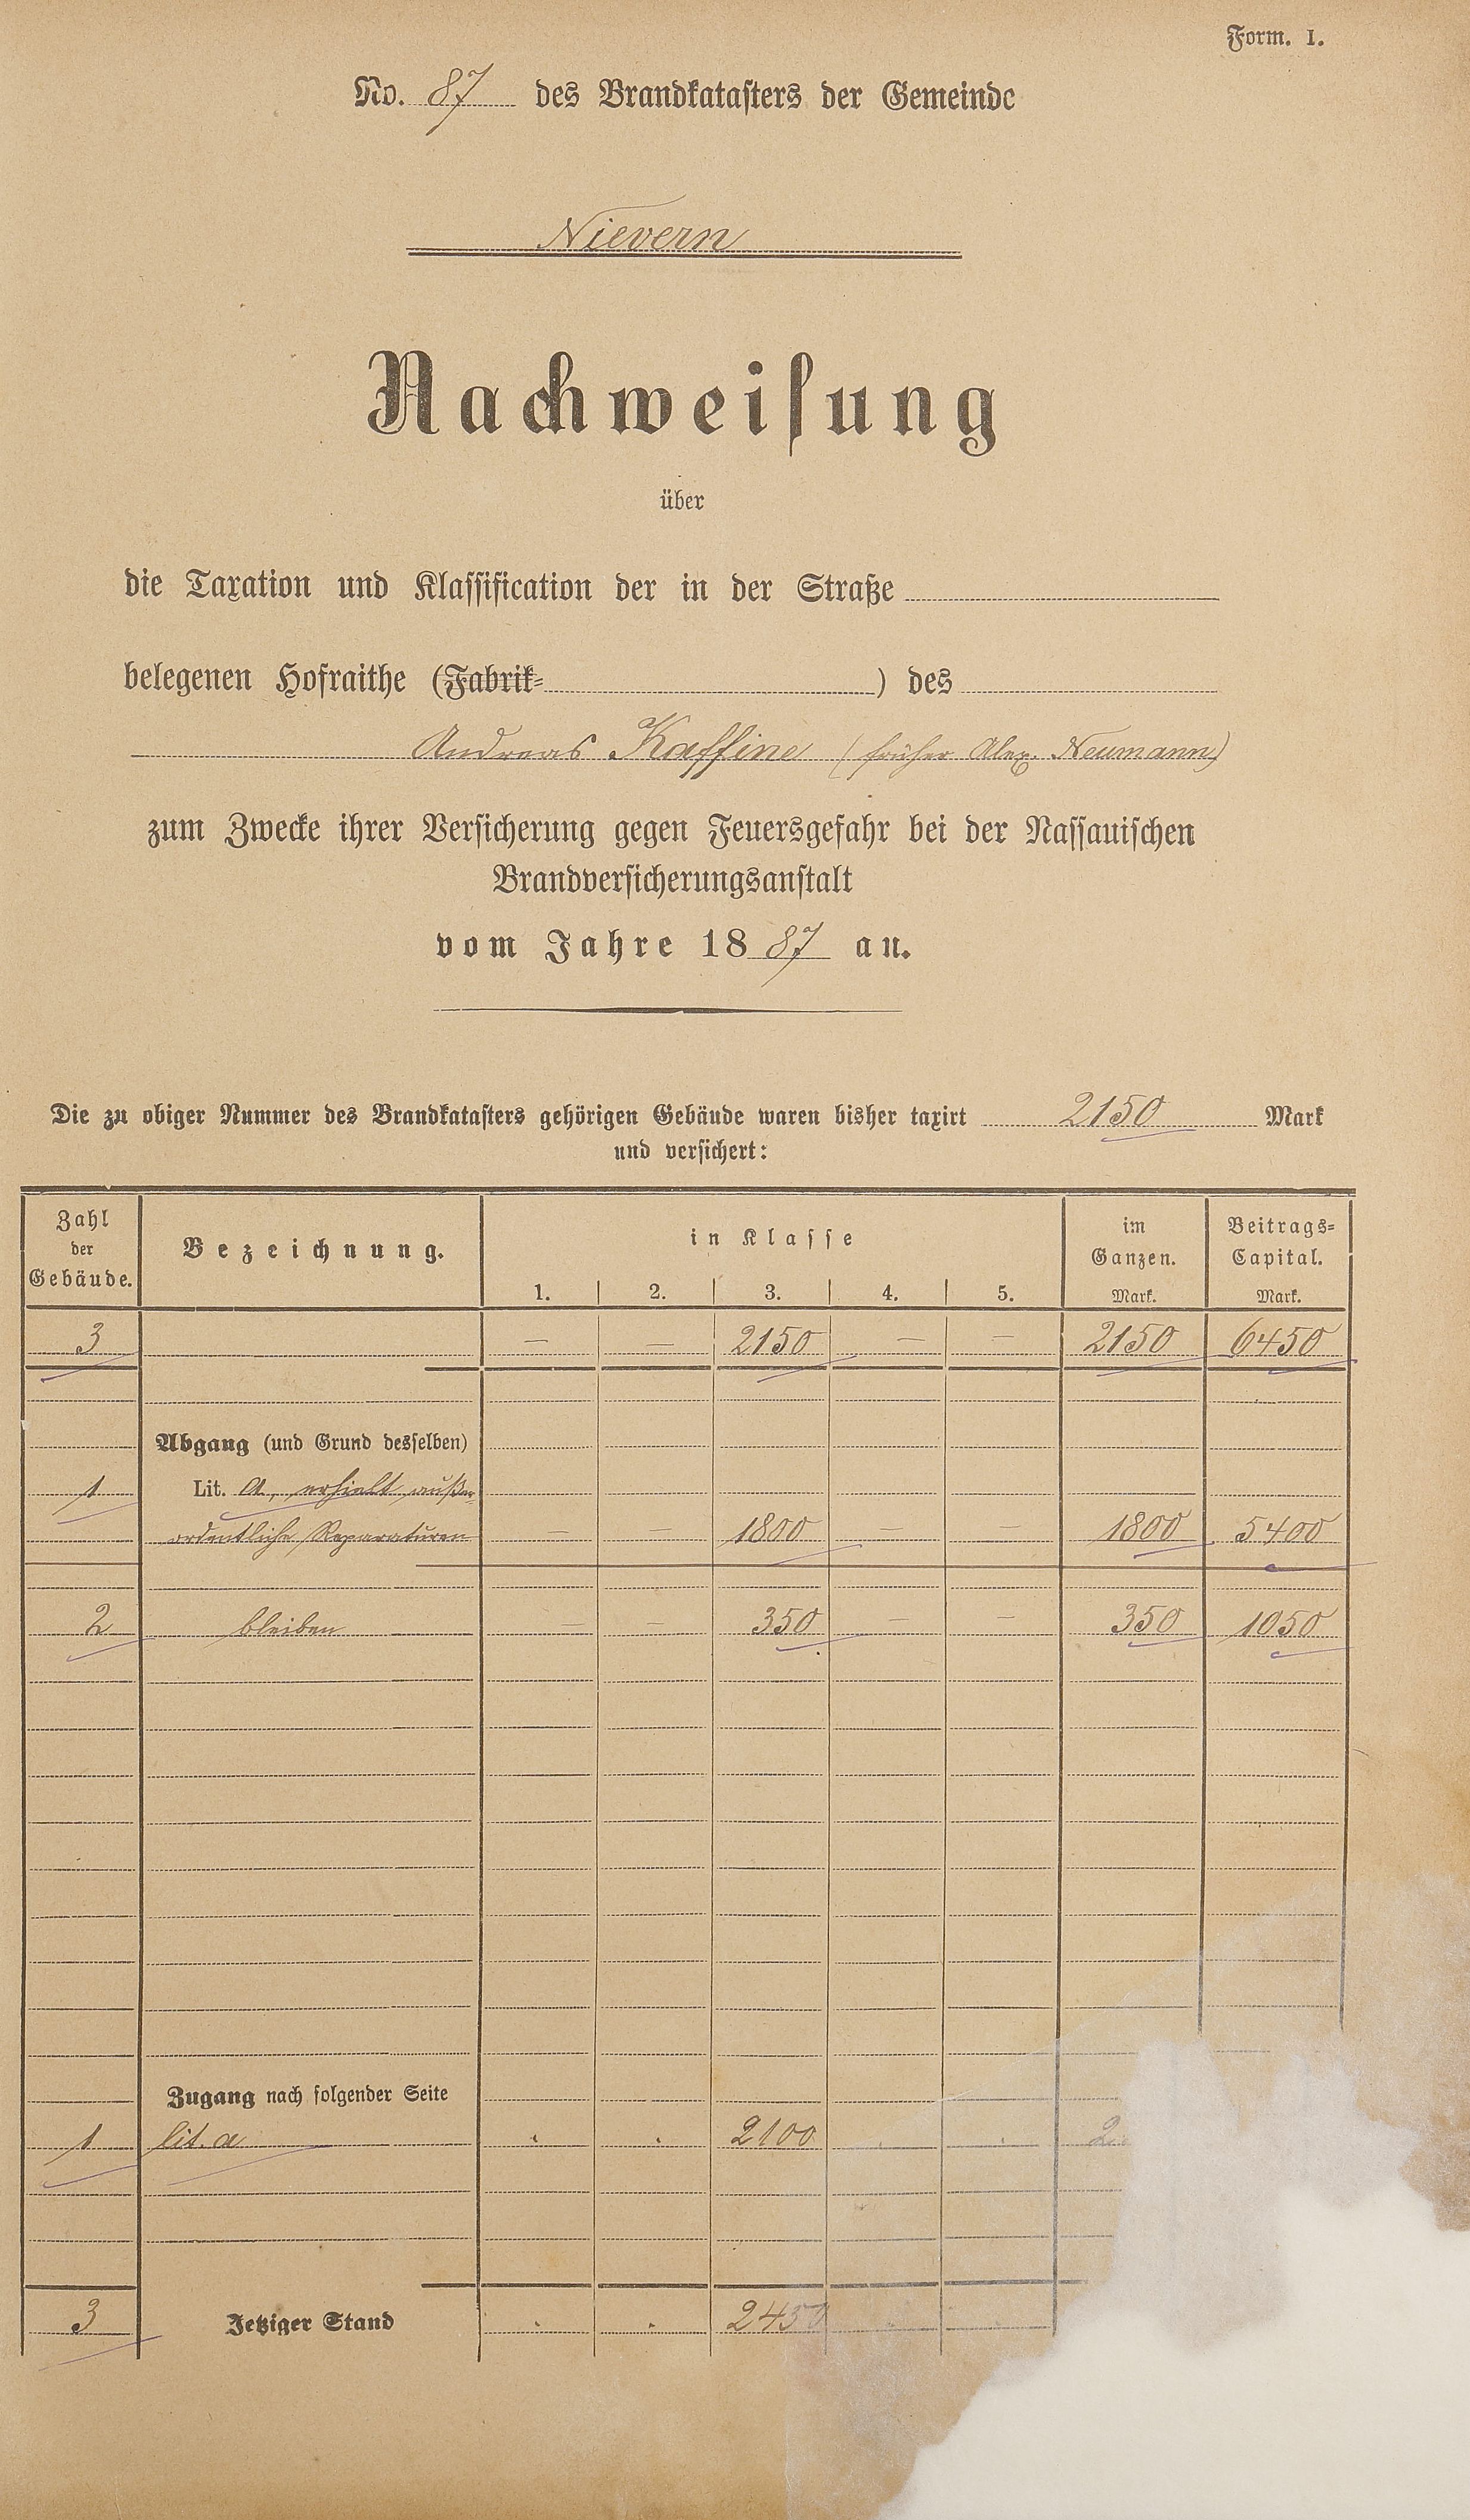 Form. I.
No. 87 des Brandkatasters der Gemeinde
Nievern
Nachweisung
über
die Taxation und Klassification der in der Straße
belegenen Hofraithe (Fabrik= ) des
Andreas Kaffine (früher Alex. Neumann)
zum Zwecke ihrer Versicherung gegen Feuersgefahr bei der Nassauischen
Brandversicherungsanstalt
vom Jahre 1887 an.
Die zu obiger Nummer des Brandkatasters gehörigen Gebäude waren bisher taxirt 2150 Mark
und versichert:
Zahl der Gebäude. Bezeichnung. in Klasse im Ganzen. Beitrags= Capital.
1. 2. 3. 4. 5. Mark. Mark.
3 — — 2150 — — 2150 6450
Abgang (und Grund desselben)
1 Lit. a, erhielt außer-
ordentliche Reparaturen — — 1800 — — 1800 5400
2 bleiben — — 350 — — 350 1050
Zugang nach folgender Seite
1 lit. a . . 2100 . .
3 Jetziger Stand . . 2450